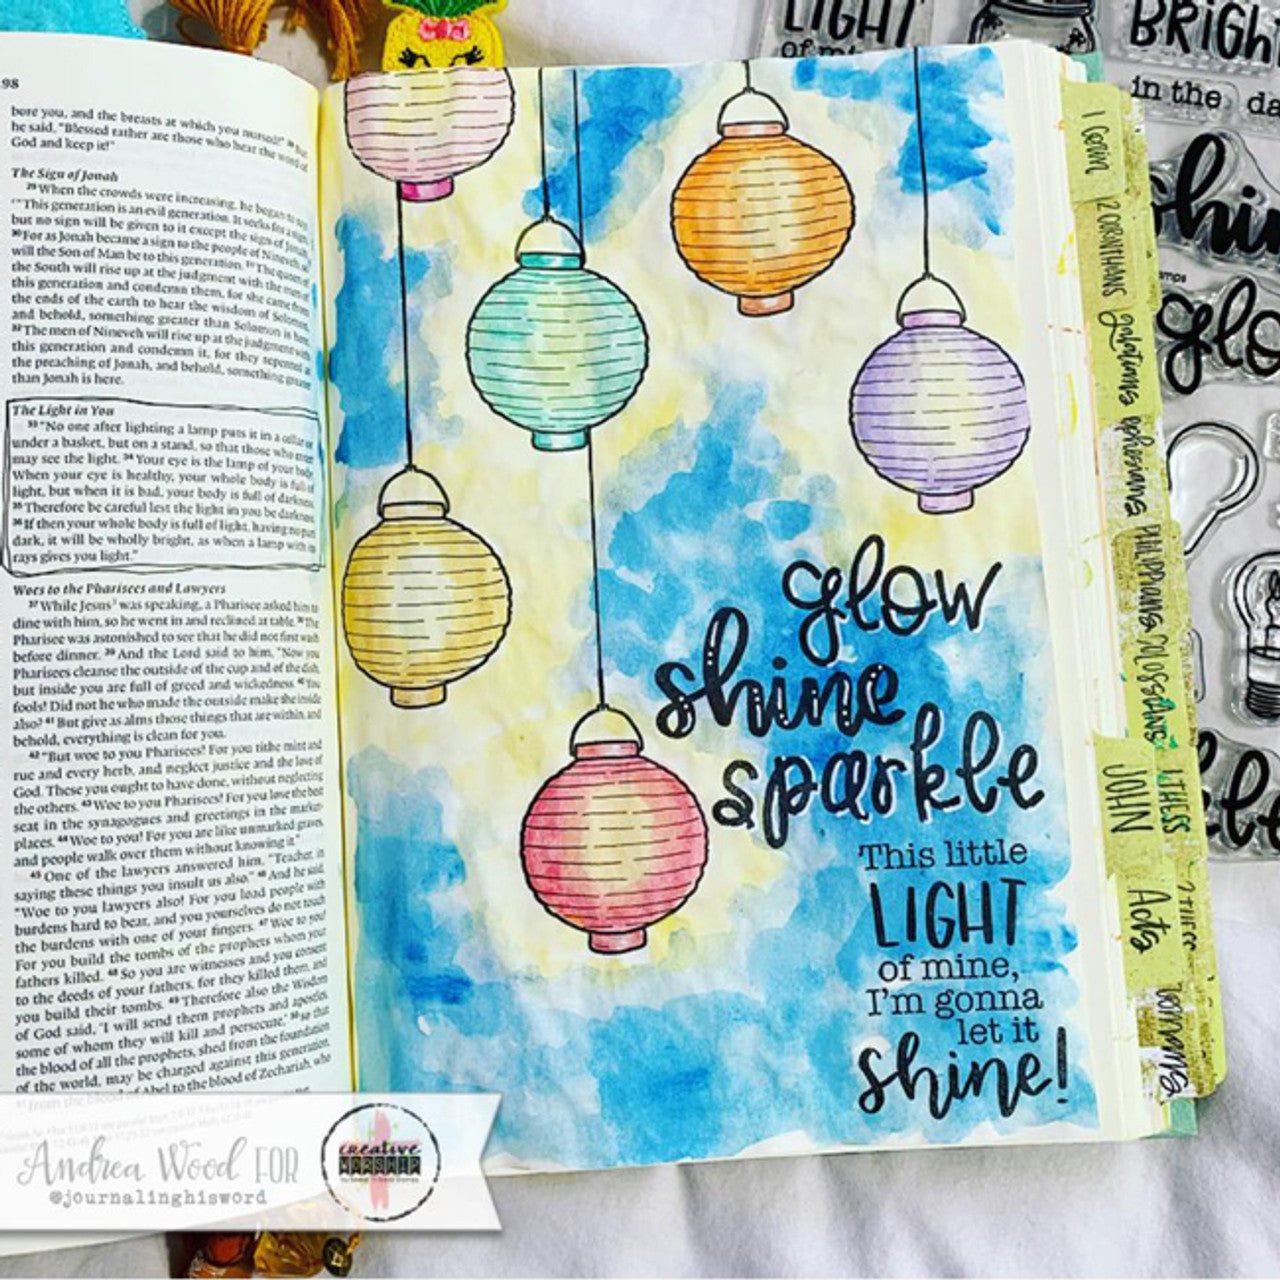 98
bore you, and the breasts at which you nursed!" 28 But
he said, "Blessed rather are those who hear the word of
God and keep it!"
The Sign of Jonah
29 When the crowds were increasing, he began to say,
"This generation is an evil generation. It seeks for a sign,
but no sign will be given to it except the sign of Jonah.
30 For as Jonah became a sign to the people of Nineveh, so
will the Son of Man be to this generation. 31 The queen of
the South will rise up at the judgment with the men of
this generation and condemn them, for she came from
the ends of the earth to hear the wisdom of Solomon,
and behold, something greater than Solomon is here.
32 The men of Nineveh will rise up at the judgment with
this generation and condemn it, for they repented at
the preaching of Jonah, and behold, something greater
than Jonah is here.
The Light in You
33 "No one after lighting a lamp puts it in a cellar or
under a basket, but on a stand, so that those who enter
may see the light. 34 Your eye is the lamp of your body.
When your eye is healthy, your whole body is full of
light, but when it is bad, your body is full of darkness.
35 Therefore be careful lest the light in you be darkness.
36 If then your whole body is full of light, having no part
dark, it will be wholly bright, as when a lamp with its
rays gives you light."
Woes to the Pharisees and Lawyers
37 While Jesus was speaking, a Pharisee asked him to
dine with him, so he went in and reclined at table. 38 The
Pharisee was astonished to see that he did not first wash
before dinner. 39 And the Lord said to him, "Now you
Pharisees cleanse the outside of the cup and of the dish,
but inside you are full of greed and wickedness. 40 You
fools! Did not he who made the outside make the inside
also? 41 But give as alms those things that are within, and
behold, everything is clean for you.
42 "But woe to you Pharisees! For you tithe mint and
rue and every herb, and neglect justice and the love of
God. These you ought to have done, without neglecting
the others. 43 Woe to you Pharisees! For you love the best
seat in the synagogues and greetings in the market-
places. 44 Woe to you! For you are like unmarked graves,
and people walk over them without knowing it."
45 One of the lawyers answered him, "Teacher, in
saying these things you insult us also." 46 And he said,
"Woe to you lawyers also! For you load people with
burdens hard to bear, and you yourselves do not touch
the burdens with one of your fingers. 47 Woe to you!
For you build the tombs of the prophets whom your
fathers killed. 48 So you are witnesses and you consent
to the deeds of your fathers, for they killed them, and
you build their tombs. 49 Therefore also the Wisdom
of God said, 'I will send them prophets and apostles,
some of whom they will kill and persecute,' 50 so that
the blood of all the prophets, shed from the foundation
of the world, may be charged against this generation,
51 from the blood of Abel to the blood of Zechariah, who
glow
shine
sparkle
This little
LIGHT
of mine,
I'm gonna
let it
shine!
1 Corin
2 CORINTHIANS
galatians
ephesians
PHILIPPIANS
COLOSSIANS
1 THESS
JOHN
Acts
romans
LIGHT
of mi
BRIGHT
in the da
shin
glo
Andrea Wood FOR
@journalinghisword
creative
WORSHIP